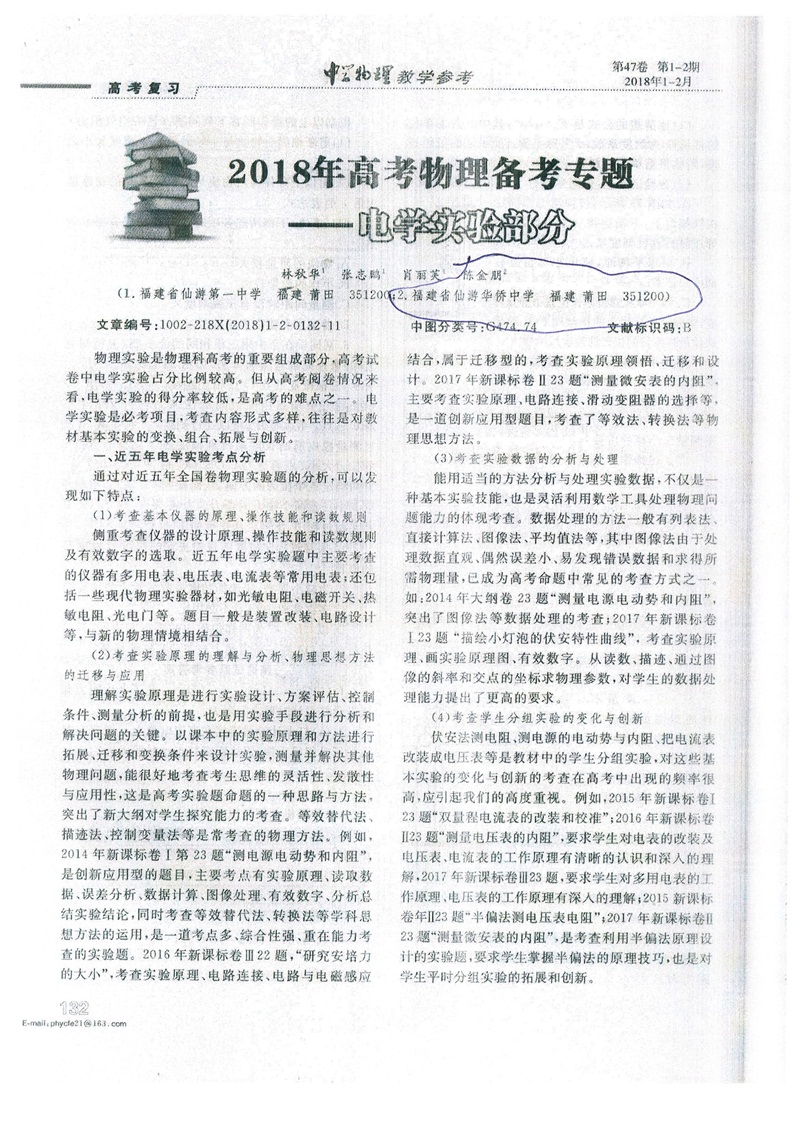 高考复习
中学物理教学参考
第47卷 第1-2期
2018年1-2月
2018年高考物理备考专题
——电学实验部分
林秋华¹ 张志鹏¹ 肖丽英¹ 陈金朋²
(1.福建省仙游第一中学 福建 莆田 351200;2.福建省仙游华侨中学 福建 莆田 351200)
文章编号:1002-218X(2018)1-2-0132-11
中图分类号:G474.74
文献标识码:B
物理实验是物理科高考的重要组成部分,高考试
卷中电学实验占分比例较高。但从高考阅卷情况来
看,电学实验的得分率较低,是高考的难点之一。电
学实验是必考项目,考查内容形式多样,往往是对教
材基本实验的变换、组合、拓展与创新。
一、近五年电学实验考点分析
通过对近五年全国卷物理实验题的分析,可以发
现如下特点:
(1)考查基本仪器的原理、操作技能和读数规则
侧重考查仪器的设计原理、操作技能和读数规则
及有效数字的选取。近五年电学实验题中主要考查
的仪器有多用电表、电压表、电流表等常用电表;还包
括一些现代物理实验器材,如光敏电阻、电磁开关、热
敏电阻、光电门等。题目一般是装置改装、电路设计
等,与新的物理情境相结合。
(2)考查实验原理的理解与分析、物理思想方法
的迁移与应用
理解实验原理是进行实验设计、方案评估、控制
条件、测量分析的前提,也是用实验手段进行分析和
解决问题的关键。以课本中的实验原理和方法进行
拓展、迁移和变换条件来设计实验,测量并解决其他
物理问题,能很好地考查考生思维的灵活性、发散性
与应用性,这是高考实验题命题的一种思路与方法,
突出了新大纲对学生探究能力的考查。等效替代法、
描迹法、控制变量法等是常考查的物理方法。例如,
2014年新课标卷Ⅰ第23题“测电源电动势和内阻”,
是创新应用型的题目,主要考点有实验原理、读取数
据、误差分析、数据计算、图像处理、有效数字、分析总
结实验结论,同时考查等效替代法、转换法等学科思
想方法的运用,是一道考点多、综合性强、重在能力考
查的实验题。2016年新课标卷Ⅲ22题,“研究安培力
的大小”,考查实验原理、电路连接、电路与电磁感应
结合,属于迁移型的,考查实验原理领悟、迁移和设
计。2017年新课标卷Ⅱ23题“测量微安表的内阻”,
主要考查实验原理、电路连接、滑动变阻器的选择等,
是一道创新应用型题目,考查了等效法、转换法等物
理思想方法。
(3)考查实验数据的分析与处理
能用适当的方法分析与处理实验数据,不仅是一
种基本实验技能,也是灵活利用数学工具处理物理问
题能力的体现考查。数据处理的方法一般有列表法、
直接计算法、图像法、平均值法等,其中图像法由于处
理数据直观、偶然误差小、易发现错误数据和求得所
需物理量,已成为高考命题中常见的考查方式之一。
如:2014年大纲卷23题“测量电源电动势和内阻”,
突出了图像法等数据处理的考查;2017年新课标卷
Ⅰ23题“描绘小灯泡的伏安特性曲线”,考查实验原
理、画实验原理图、有效数字。从读数、描迹、通过图
像的斜率和交点的坐标求物理参数,对学生的数据处
理能力提出了更高的要求。
(4)考查学生分组实验的变化与创新
伏安法测电阻、测电源的电动势与内阻、把电流表
改装成电压表等是教材中的学生分组实验,对这些基
本实验的变化与创新的考查在高考中出现的频率很
高,应引起我们的高度重视。例如,2015年新课标卷Ⅰ
23题“双量程电流表的改装和校准”;2016年新课标卷
Ⅱ23题“测量电压表的内阻”,要求学生对电表的改装及
电压表、电流表的工作原理有清晰的认识和深入的理
解,2017年新课标卷Ⅲ23题,要求学生对多用电表的工
作原理、电压表的工作原理有深入的理解;2015新课标
卷年Ⅱ23题“半偏法测电压表电阻”;2017年新课标卷Ⅱ
23题“测量微安表的内阻”,是考查利用半偏法原理设
计的实验题,要求学生掌握半偏法的原理技巧,也是对
学生平时分组实验的拓展和创新。
132
E-mail:phycfe21@163.com